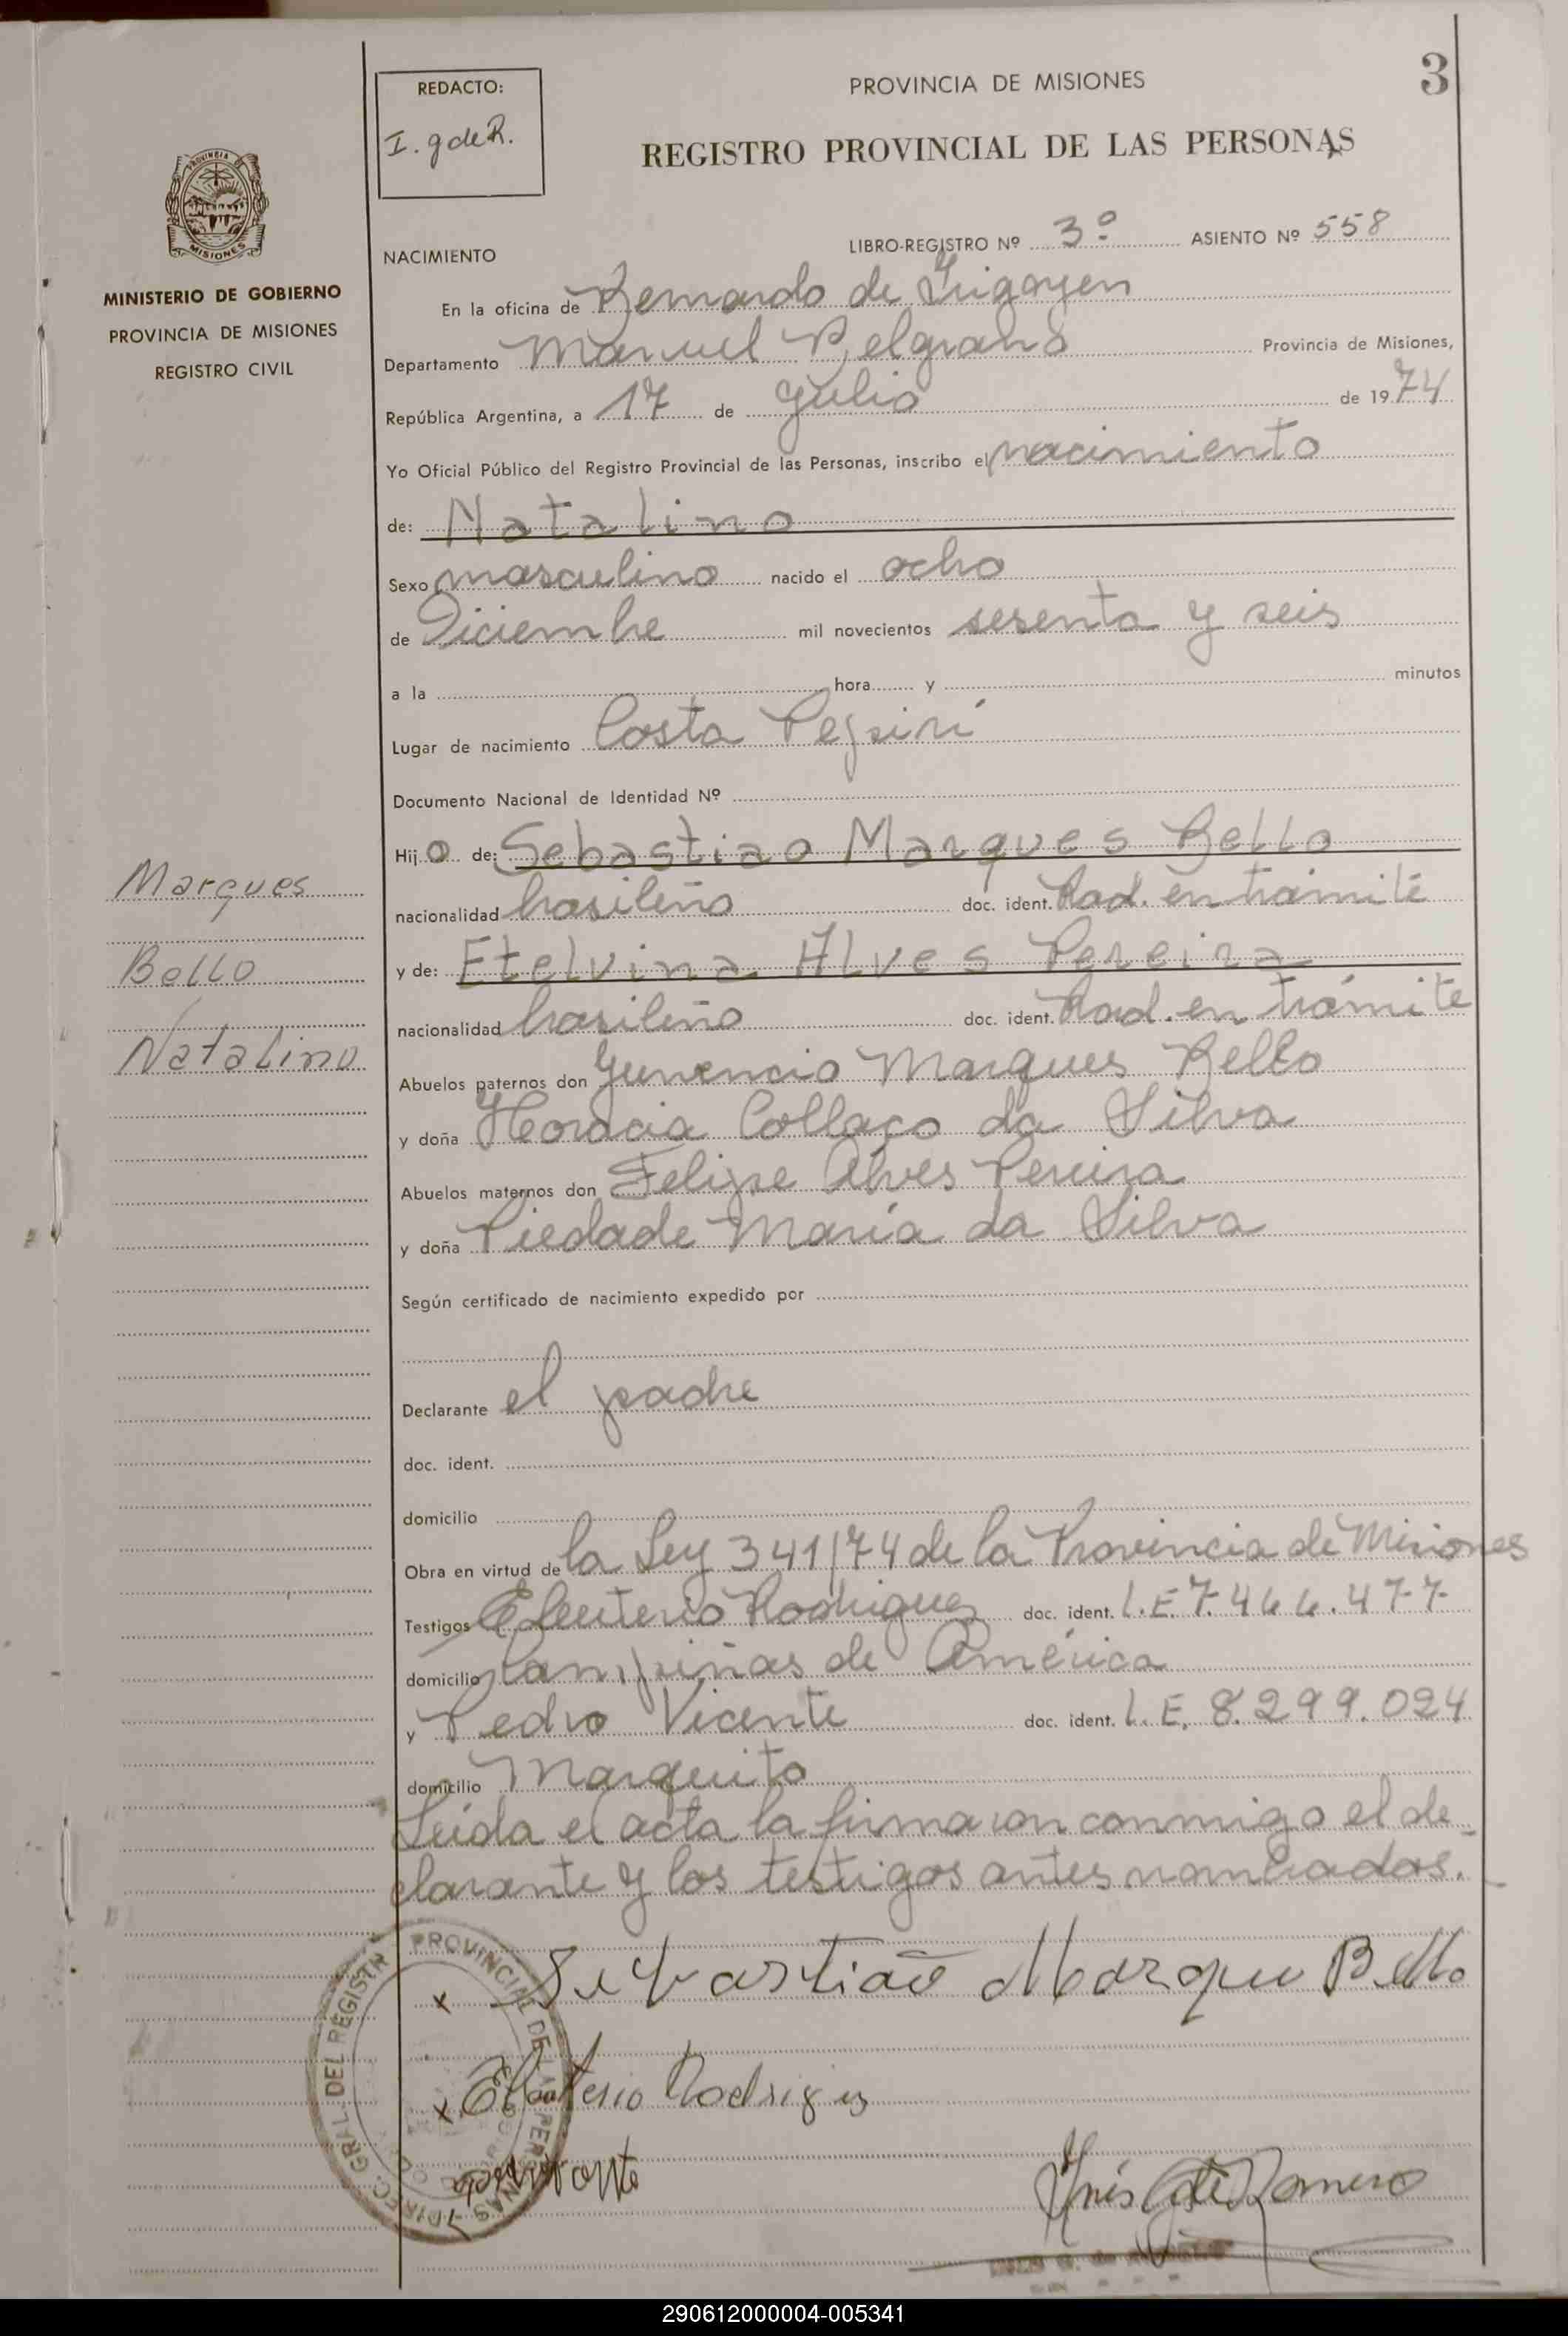 REDACTO:
I. g de R.
PROVINCIA DE MISIONES
3
REGISTRO PROVINCIAL DE LAS PERSONAS
PROVINCIA DE
MISIONES
MINISTERIO DE GOBIERNO
PROVINCIA DE MISIONES
REGISTRO CIVIL
NACIMIENTO
LIBRO-REGISTRO Nº 3º ASIENTO Nº 558
En la oficina de Bernardo de Yrigoyen
Departamento Manuel Belgrano Provincia de Misiones,
República Argentina, a 17 de Julio de 1974
Yo Oficial Público del Registro Provincial de las Personas, inscribo el nacimiento
de: Natalino
Sexo masculino nacido el ocho
de Diciembre mil novecientos sesenta y seis
a la hora y minutos
Lugar de nacimiento Costa Pepirí
Documento Nacional de Identidad Nº
Hijo de: Sebastiao Marques Bello
nacionalidad brasileño doc. ident. Rad. en trámite
y de: Etelvina Alves Pereira
nacionalidad brasileño doc. ident. Rad. en trámite
Abuelos paternos don Yuvencio Marques Bello
y doña Horacia Collaço da Silva
Abuelos maternos don Felipe Alves Pereira
y doña Piedade María da Silva
Marques
Bello
Natalino
Según certificado de nacimiento expedido por
Declarante el padre
doc. ident.
domicilio
Obra en virtud de la Ley 341/74 de la Provincia de Misiones
Testigos Eleuterio Rodriguez doc. ident. L.E. 7.466.477
domicilio Campiñas de América
y Pedro Vicente doc. ident. L.E. 8.299.024
domicilio Marquito
Leída el acta la firmaron conmigo el de-
clarante y los testigos antes nombrados.
x Sebastiaõ Marques Bello
x Eleuterio Rodriguez
Inés G de Romero
DIREC. GRAL. DEL REGISTRO PROVINCIAL DE LAS PERSONAS
290612000004-005341